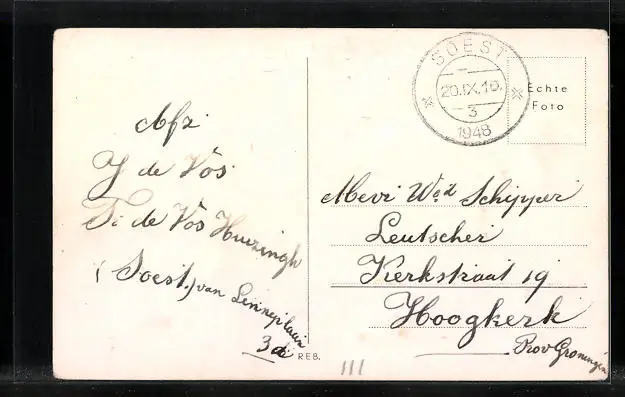 SOEST
20.IX.16.
3
1948
Echte
Foto
Afz.
J de Vos
Ti de Vos Huizingh
(Soest.) van Lenneplaan
3d
Mevr Wed Schipper
Leutscher
Kerkstraat 19
Hoogkerk
Prov Groningen
REB.